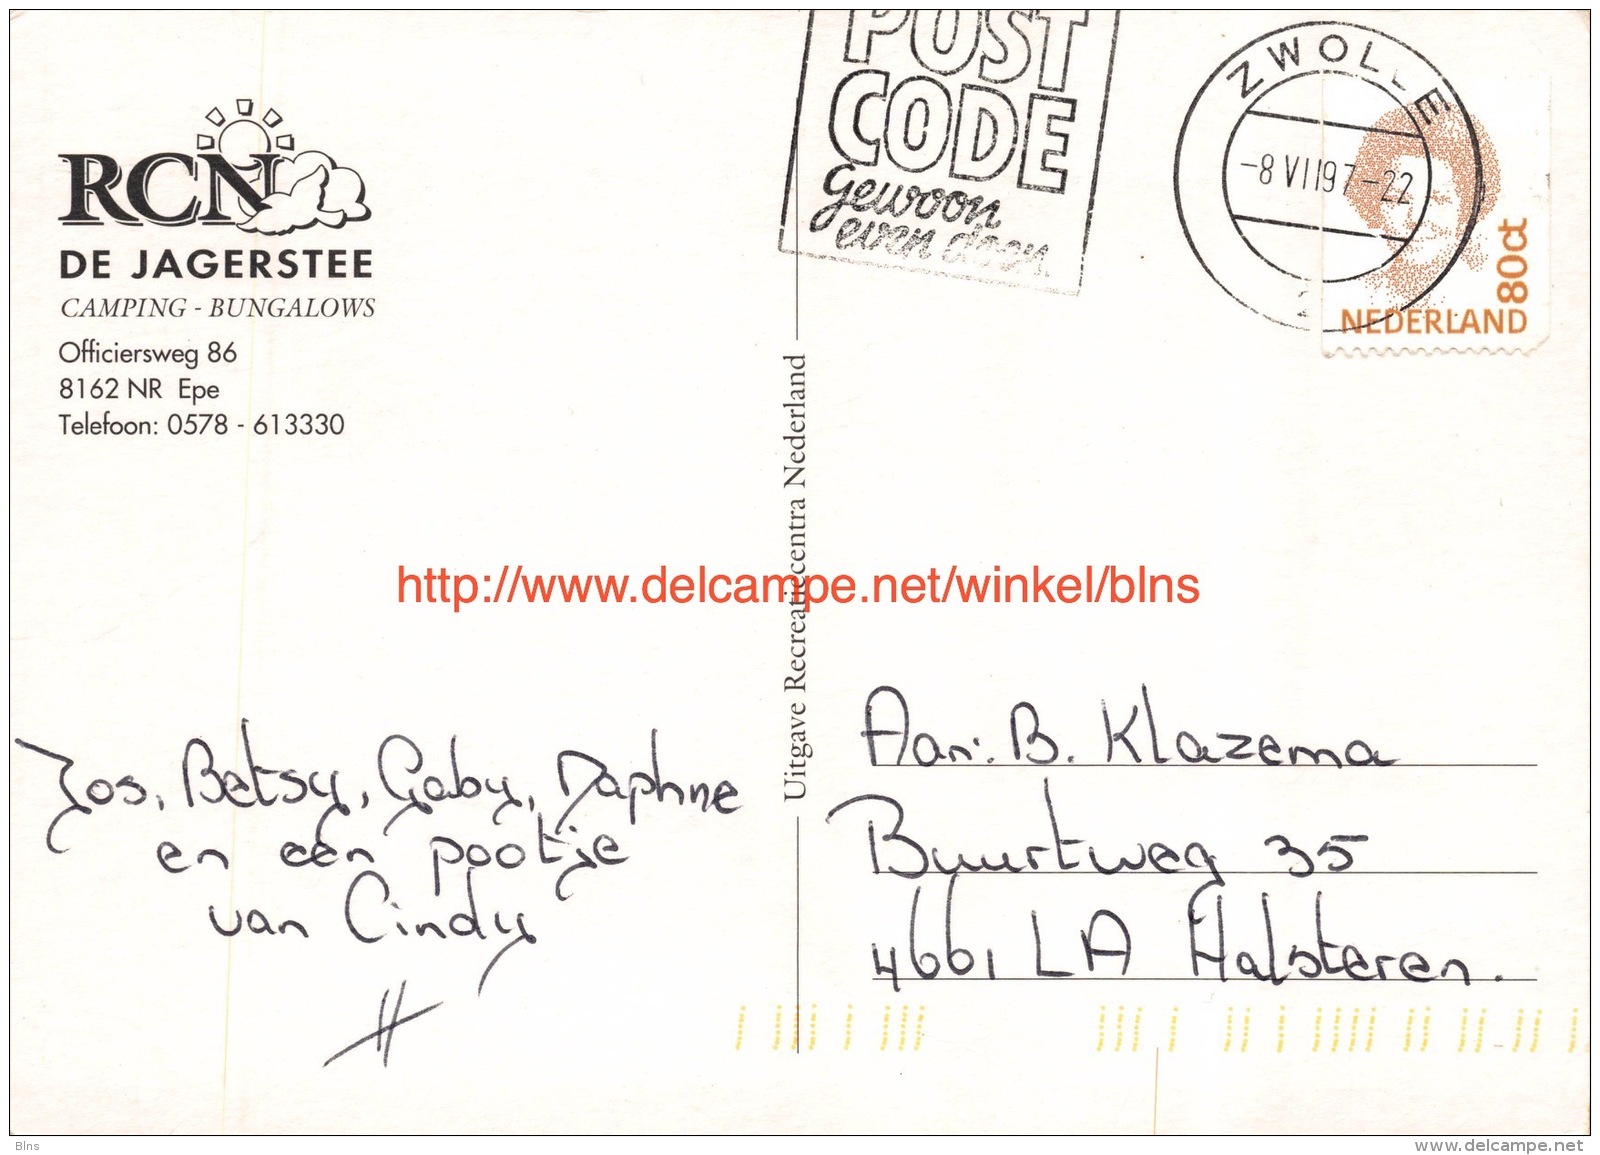 POST
CODE
gewoon
even doen.
ZWOLLE
-8 VII 97-22
2
80ct
NEDERLAND
RCN
DE JAGERSTEE
CAMPING - BUNGALOWS
Officiersweg 86
8162 NR Epe
Telefoon: 0578 - 613330
Uitgave Recreatiecentra Nederland
http://www.delcampe.net/winkel/blns
Jos, Betsy, Gaby, Daphne
en een pootje
van Cindy
Aan: B. Klazema
Buurtweg 35
4661 LA Halsteren.
Blns
www.delcampe.net